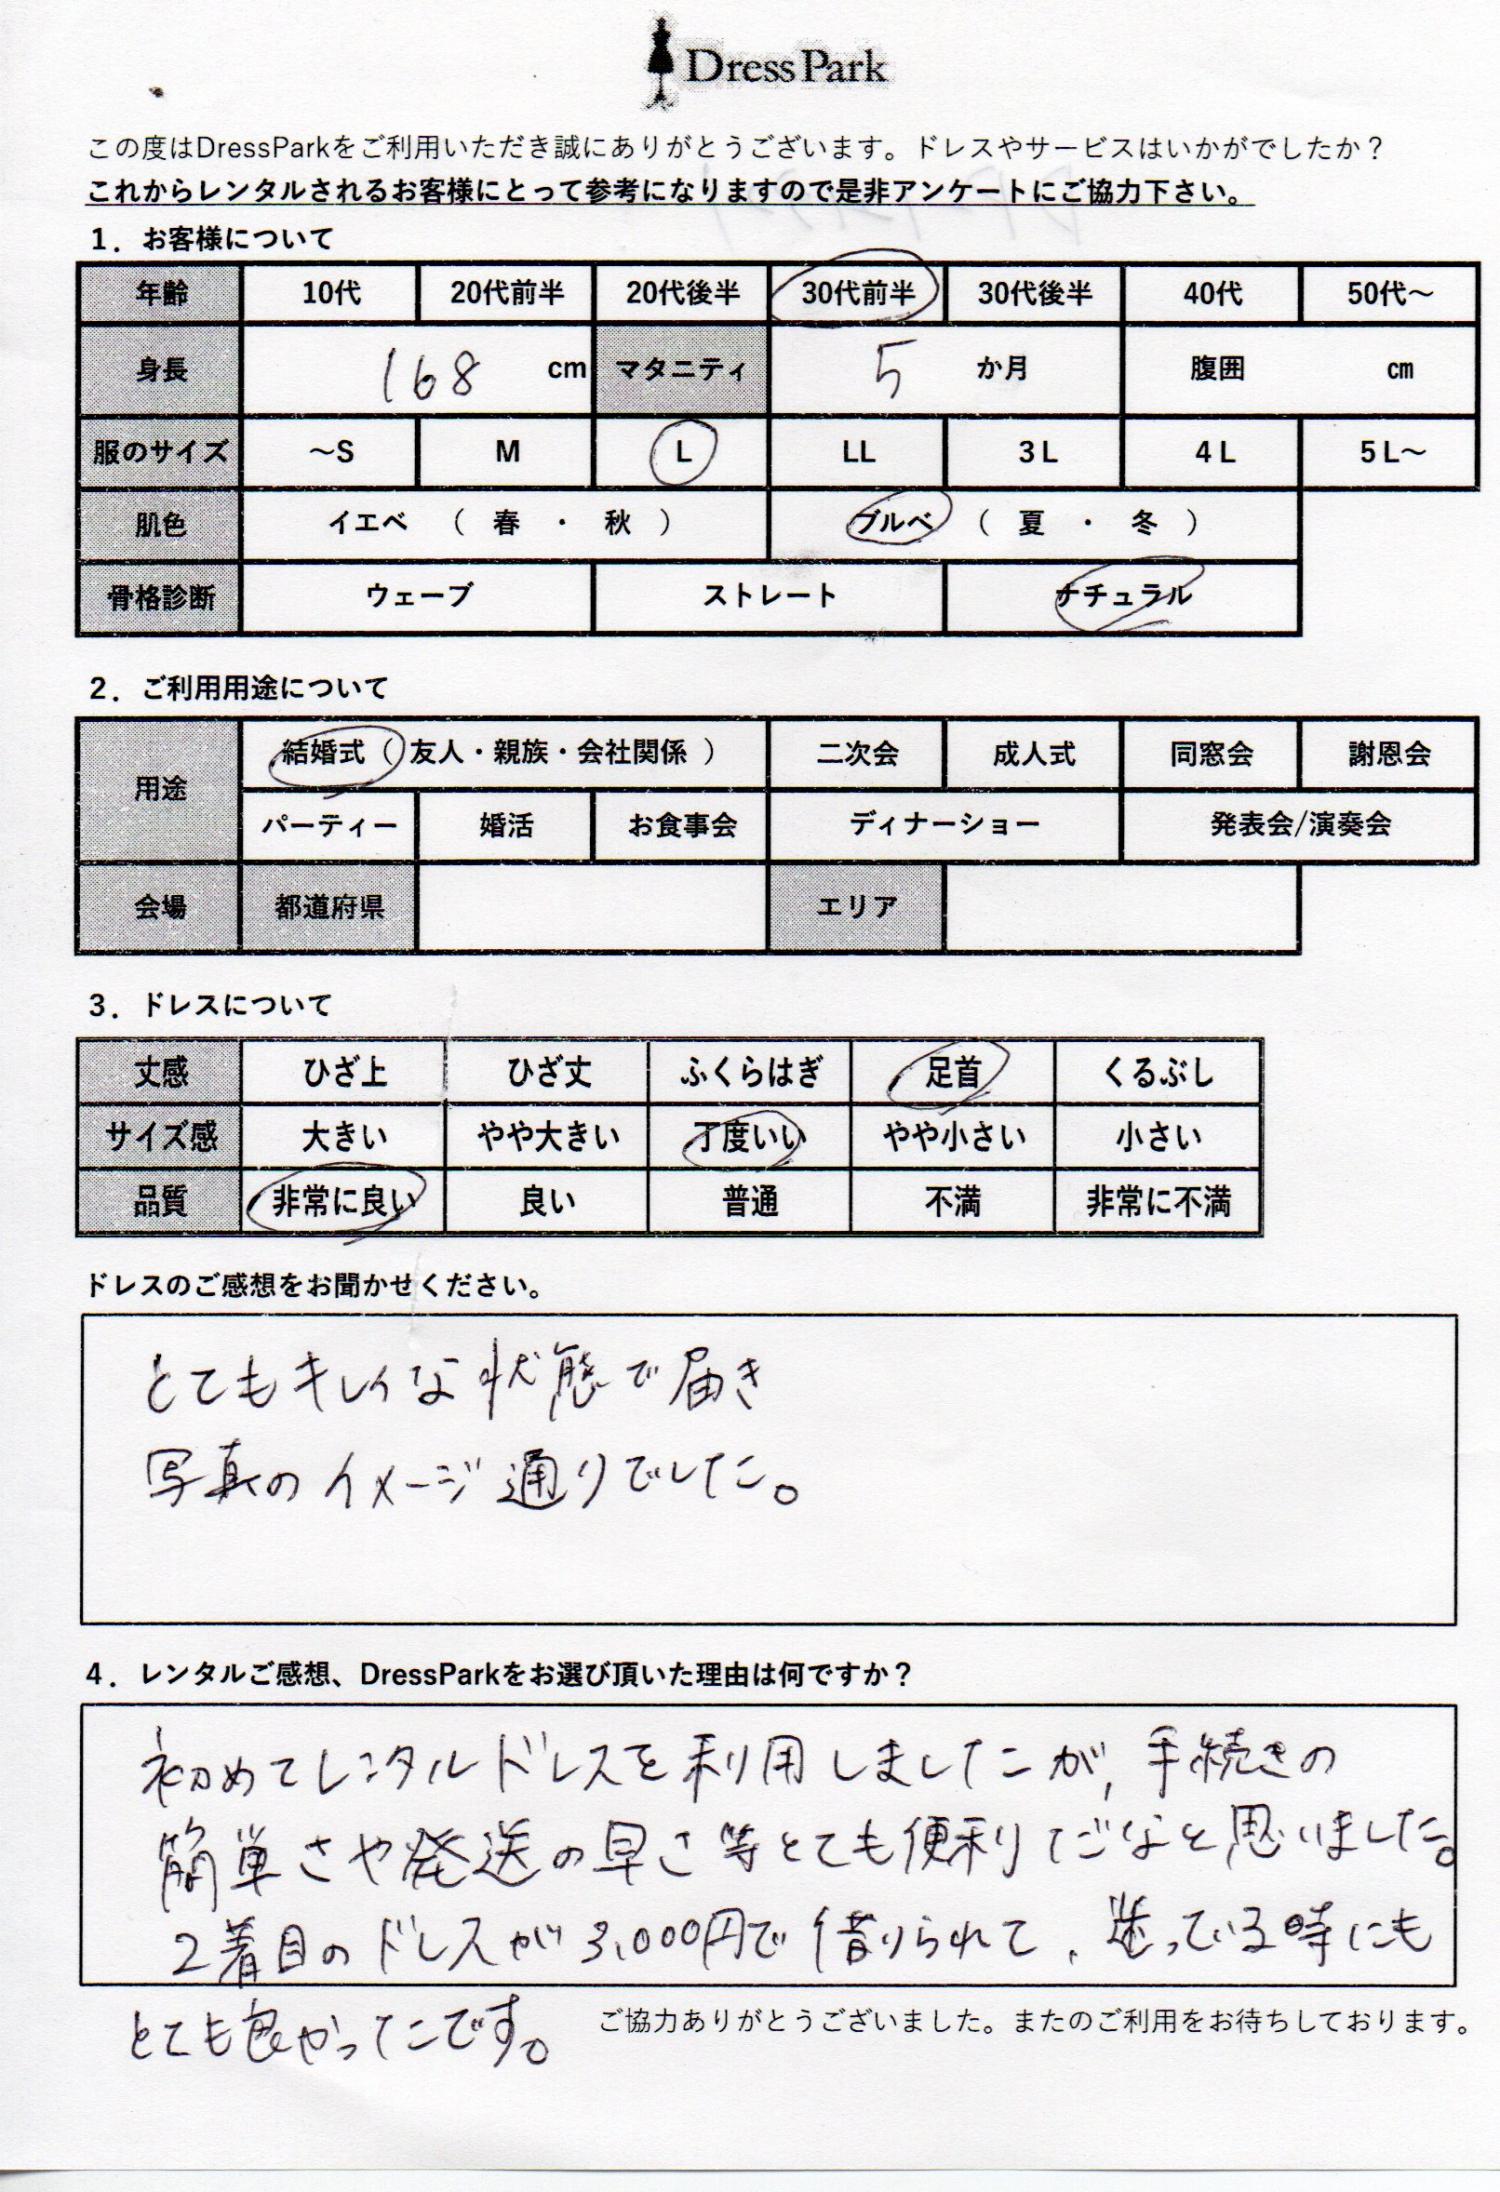 Dress Park
この度はDressParkをご利用いただき誠にありがとうございます。ドレスやサービスはいかがでしたか？
これからレンタルされるお客様にとって参考になりますので是非アンケートにご協力下さい。
1．お客様について
年齢 10代 20代前半 20代後半 30代前半 30代後半 40代 50代～
身長 168 cm マタニティ 5 か月 腹囲 ㎝
服のサイズ ～S M L LL 3L 4L 5L～
肌色 イエベ （ 春 ・ 秋 ） ブルベ （ 夏 ・ 冬 ）
骨格診断 ウェーブ ストレート ナチュラル
2．ご利用用途について
用途 結婚式（ 友人・親族・会社関係 ） 二次会 成人式 同窓会 謝恩会
パーティー 婚活 お食事会 ディナーショー 発表会/演奏会
会場 都道府県 エリア
3．ドレスについて
丈感 ひざ上 ひざ丈 ふくらはぎ 足首 くるぶし
サイズ感 大きい やや大きい 丁度いい やや小さい 小さい
品質 非常に良い 良い 普通 不満 非常に不満
ドレスのご感想をお聞かせください。
とてもキレイな状態で届き
写真のイメージ通りでした。
4．レンタルご感想、DressParkをお選び頂いた理由は何ですか？
初めてレンタルドレスを利用しましたが、手続きの
簡単さや発送の早さ等とても便利だなと思いました。
2着目のドレスが3,000円で借りられて、迷っている時にも
とても良かったです。
ご協力ありがとうございました。またのご利用をお待ちしております。